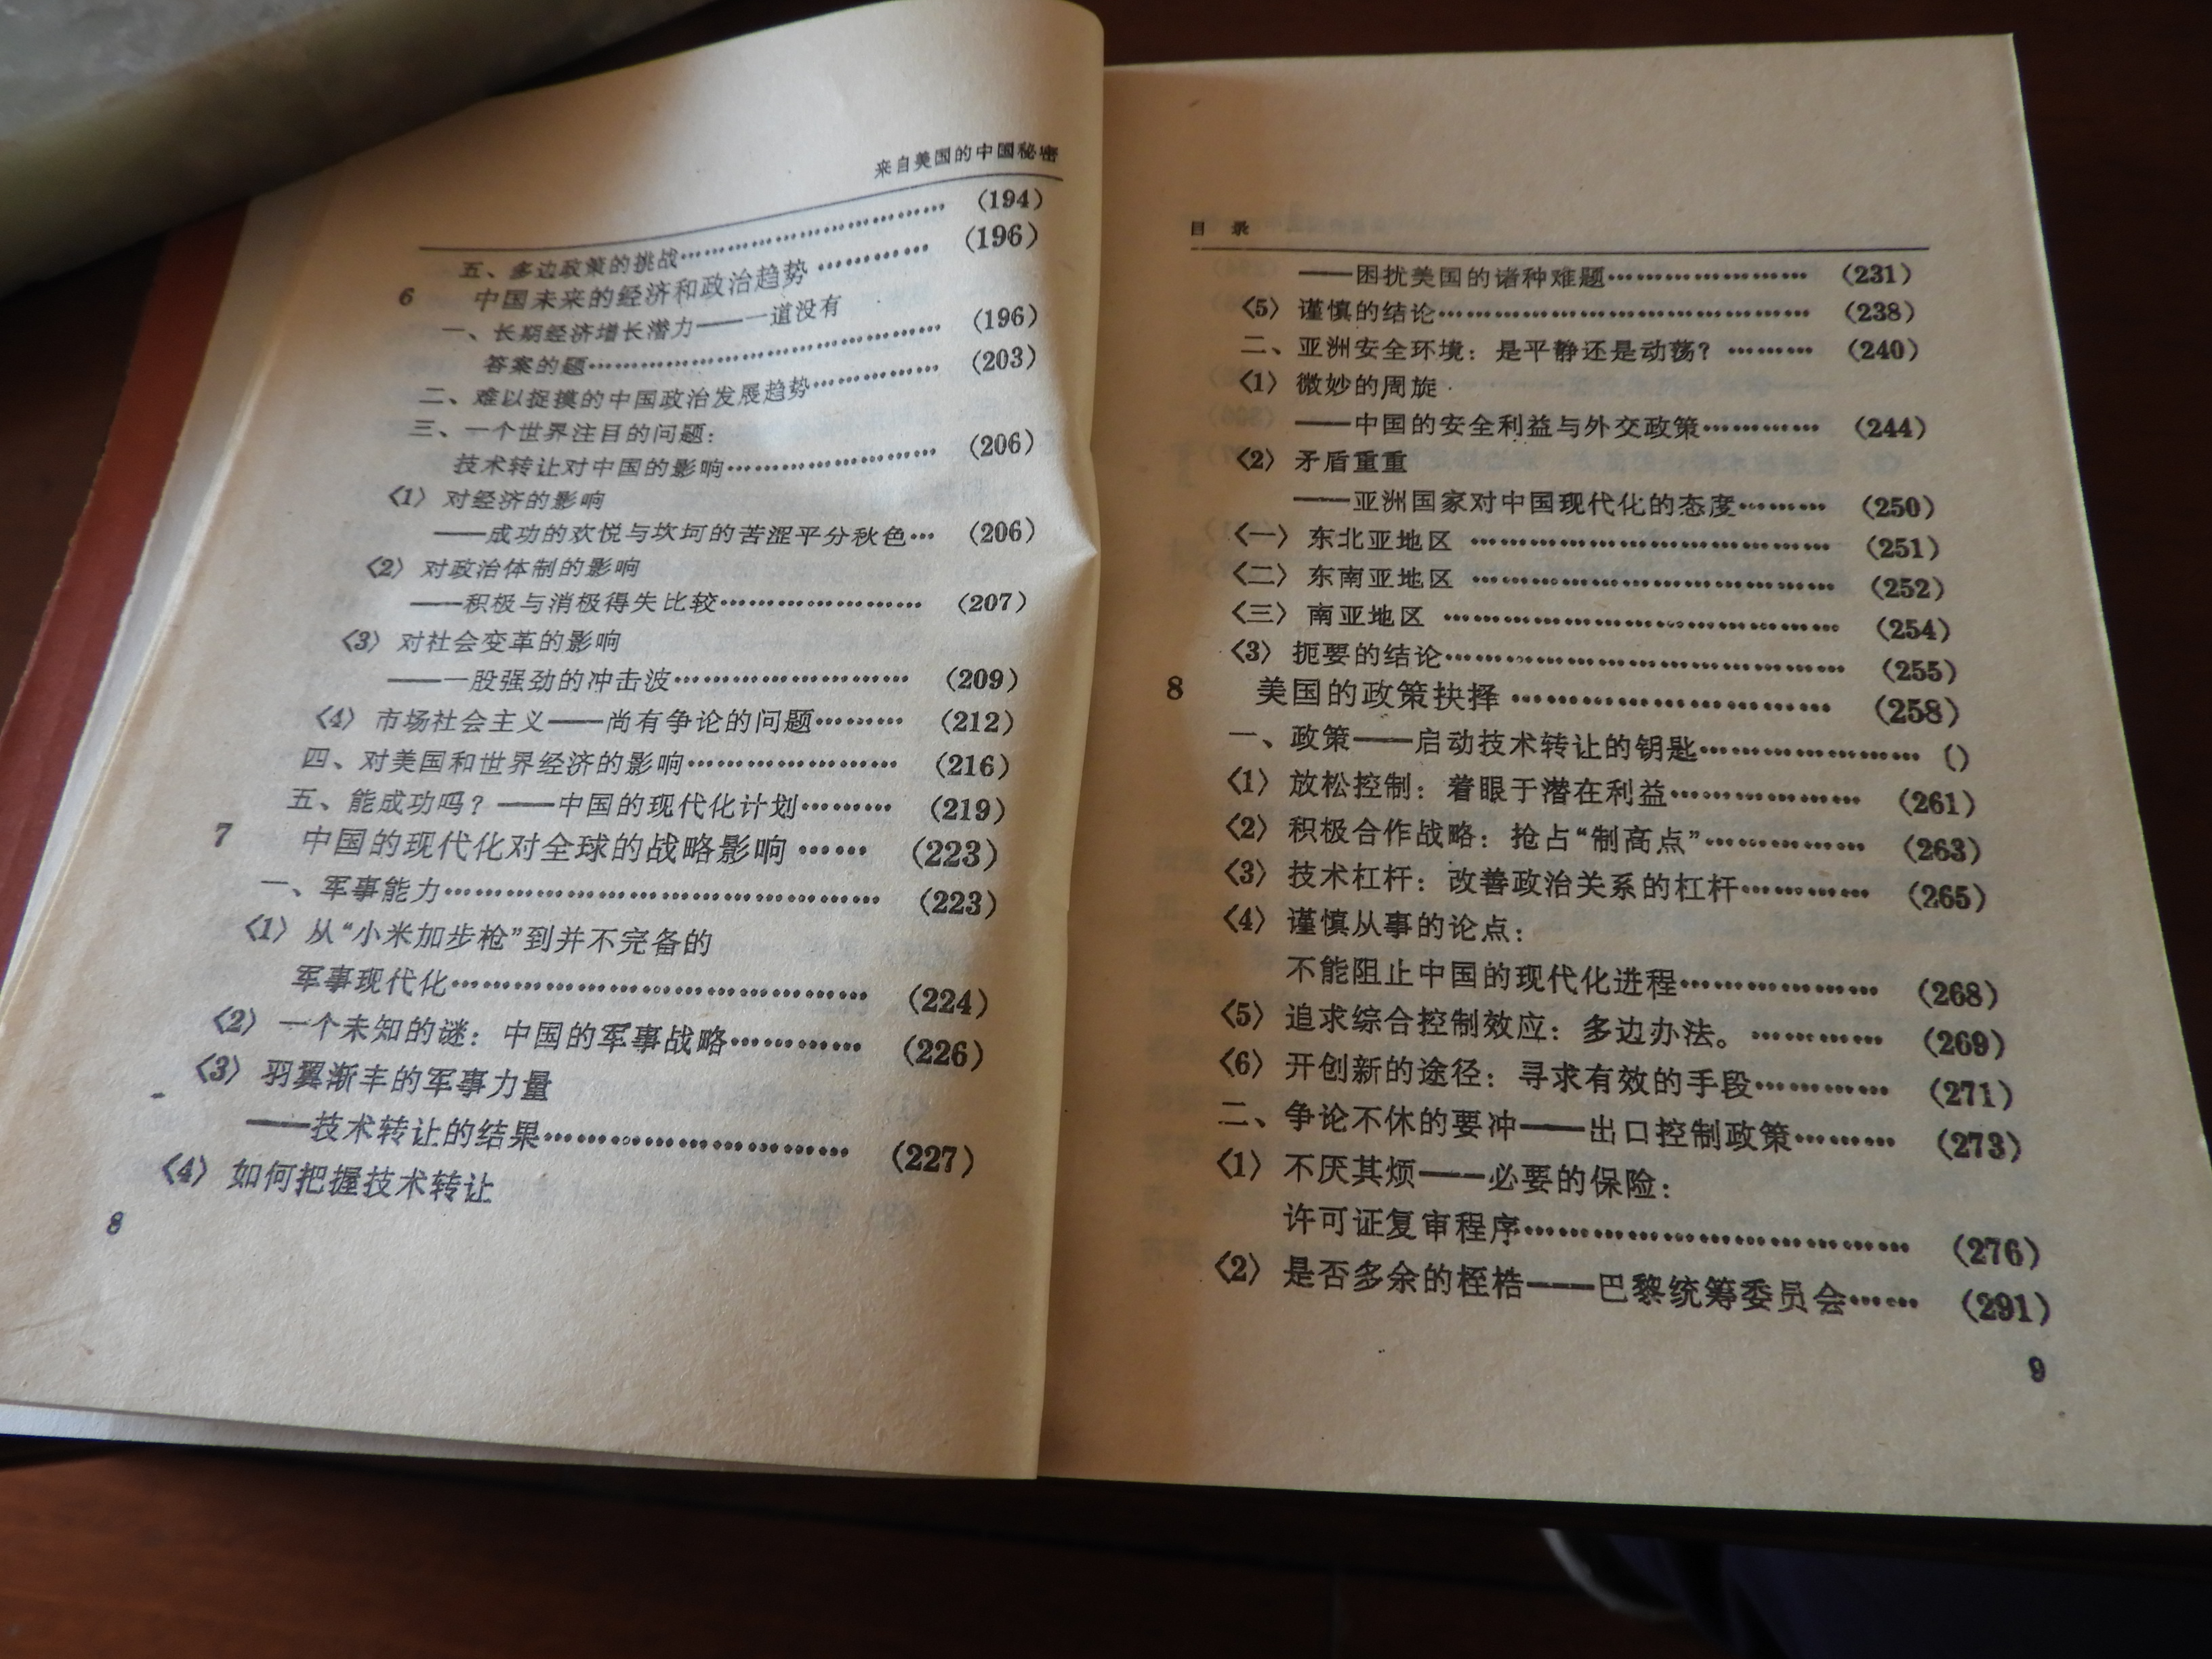 来自美国的中国秘密
五、多边政策的挑战……………………………(194)
6 中国未来的经济和政治趋势…………(196)
一、长期经济增长潜力——一道没有
答案的题……………………………………(196)
二、难以捉摸的中国政治发展趋势……………(203)
三、一个世界注目的问题：
技术转让对中国的影响……………………(206)
〈1〉对经济的影响
——成功的欢悦与坎坷的苦涩平分秋色…(206)
〈2〉对政治体制的影响
——积极与消极得失比较……………………(207)
〈3〉对社会变革的影响
——一股强劲的冲击波………………………(209)
〈4〉市场社会主义——尚有争论的问题………(212)
四、对美国和世界经济的影响…………………(216)
五、能成功吗？——中国的现代化计划………(219)
7 中国的现代化对全球的战略影响……(223)
一、军事能力……………………………………(223)
〈1〉从“小米加步枪”到并不完备的
军事现代化…………………………………(224)
〈2〉一个未知的谜：中国的军事战略…………(226)
〈3〉羽翼渐丰的军事力量
——技术转让的结果…………………………(227)
〈4〉如何把握技术转让
8
目 录
——困扰美国的诸种难题…………………(231)
〈5〉谨慎的结论………………………………(238)
二、亚洲安全环境：是平静还是动荡？………(240)
〈1〉微妙的周旋
——中国的安全利益与外交政策…………(244)
〈2〉矛盾重重
——亚洲国家对中国现代化的态度………(250)
〈一〉东北亚地区………………………………(251)
〈二〉东南亚地区………………………………(252)
〈三〉南亚地区…………………………………(254)
〈3〉扼要的结论…………………………………(255)
8 美国的政策抉择……………………………(258)
一、政策——启动技术转让的钥匙……………………()
〈1〉放松控制：着眼于潜在利益………………(261)
〈2〉积极合作战略：抢占“制高点”……………(263)
〈3〉技术杠杆：改善政治关系的杠杆…………(265)
〈4〉谨慎从事的论点：
不能阻止中国的现代化进程………………(268)
〈5〉追求综合控制效应：多边办法。…………(269)
〈6〉开创新的途径：寻求有效的手段…………(271)
二、争论不休的要冲——出口控制政策………(273)
〈1〉不厌其烦——必要的保险：
许可证复审程序………………………………(276)
〈2〉是否多余的桎梏——巴黎统筹委员会……(291)
9